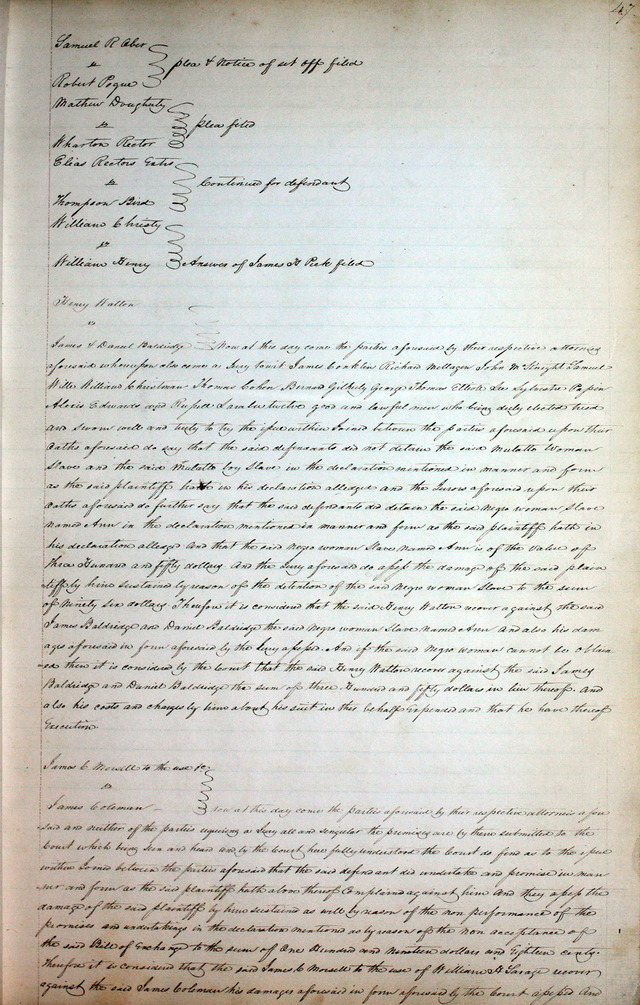 47.
Samuel R Ober
vs
plea & Notice of set off filed
Robert Pogue
Mathew Dougherty
vs
plea filed
Wharton Rector
Elias Rectors Extrs
vs
Continued for defendant
Thompson Bird
William Christy
vs
William Henry Answer of James H Peck filed
Henry Walton
vs
James & Daniel Baldridge Now at this day come the parties aforesaid by their respective attornies
aforesaid whereupon also come a Jury towit James Conklin Richard Milligan John M Knight Samuel
Wills William Christman Thomas Cohen Bernard Gilhuly George Thomas Elliott Lee Sylvestre Papin
Alexis Edwards and Russell twelve good and lawful men who being duly elected tried
and sworn well and truly to try the issue within Joined between the parties aforesaid upon their
oaths aforesaid do say that the said defendants did not detain the said Mulatto Woman
Slave and the said Mulatto boy Slave in the declaration mentioned in manner and form
as the said plaintiff hath in his declaration alledged and the Jurors aforesaid upon their
oaths aforesaid do further say that the said defendants did detain the said Negro woman Slave
named Ann in the declaration mentioned in manner and form as the said plaintiff hath in
his declaration alledged And that the said Negro woman Slave named Ann is of the value off
Three Hundred and fifty dollars And the Jury aforesaid do assess the damage of the said plain
tiff by him sustained by reason of the detention of the said Negro woman Slave to the sum
of Ninety Six dollars Therefore it is considered that the said Henry Walton recover against the said
James Baldridge and Daniel Baldridge the said Negro woman Slave named Ann and also his dam
ages aforesaid in form aforesaid by the Jury assessed And if the said Negro woman cannot be obtain
ed then it is considered by the Court that the said Henry Walton recover against the said James
Baldridge and Daniel Baldridge the sum of three Hundred and fifty dollars in lieu thereof and
also his costs and charges by him about his suit in this behalf Expended and that he have thereof
Execution
James C Morsell to the use &c
vs
James Coleman Now at this day come the parties aforesaid by their respective attornies afore
said and neither of the parties requiring a Jury all and singular the premises are by them submitted to the
Court which being seen and heard and by the Court here fully understood the Court do find as to the issue
within Joined between the parties aforesaid that the said defendant did undertake and promise in man
ner and form as the said plaintiff hath above thereof Complained against him And they assess the
damage of the said plaintiff by him sustained as well by reason of the non performance of the
promises and undertakings in the declaration mentioned as by reason of the non acceptance of
the said Bill of Exchange to the sum of One Hundred and Nineteen dollars and Eighteen cents
Therefore it is considered that the said James C Morsell to the use of William H Savage recover
against the said James Coleman his damages aforesaid in form aforesaid by the Court assessed And